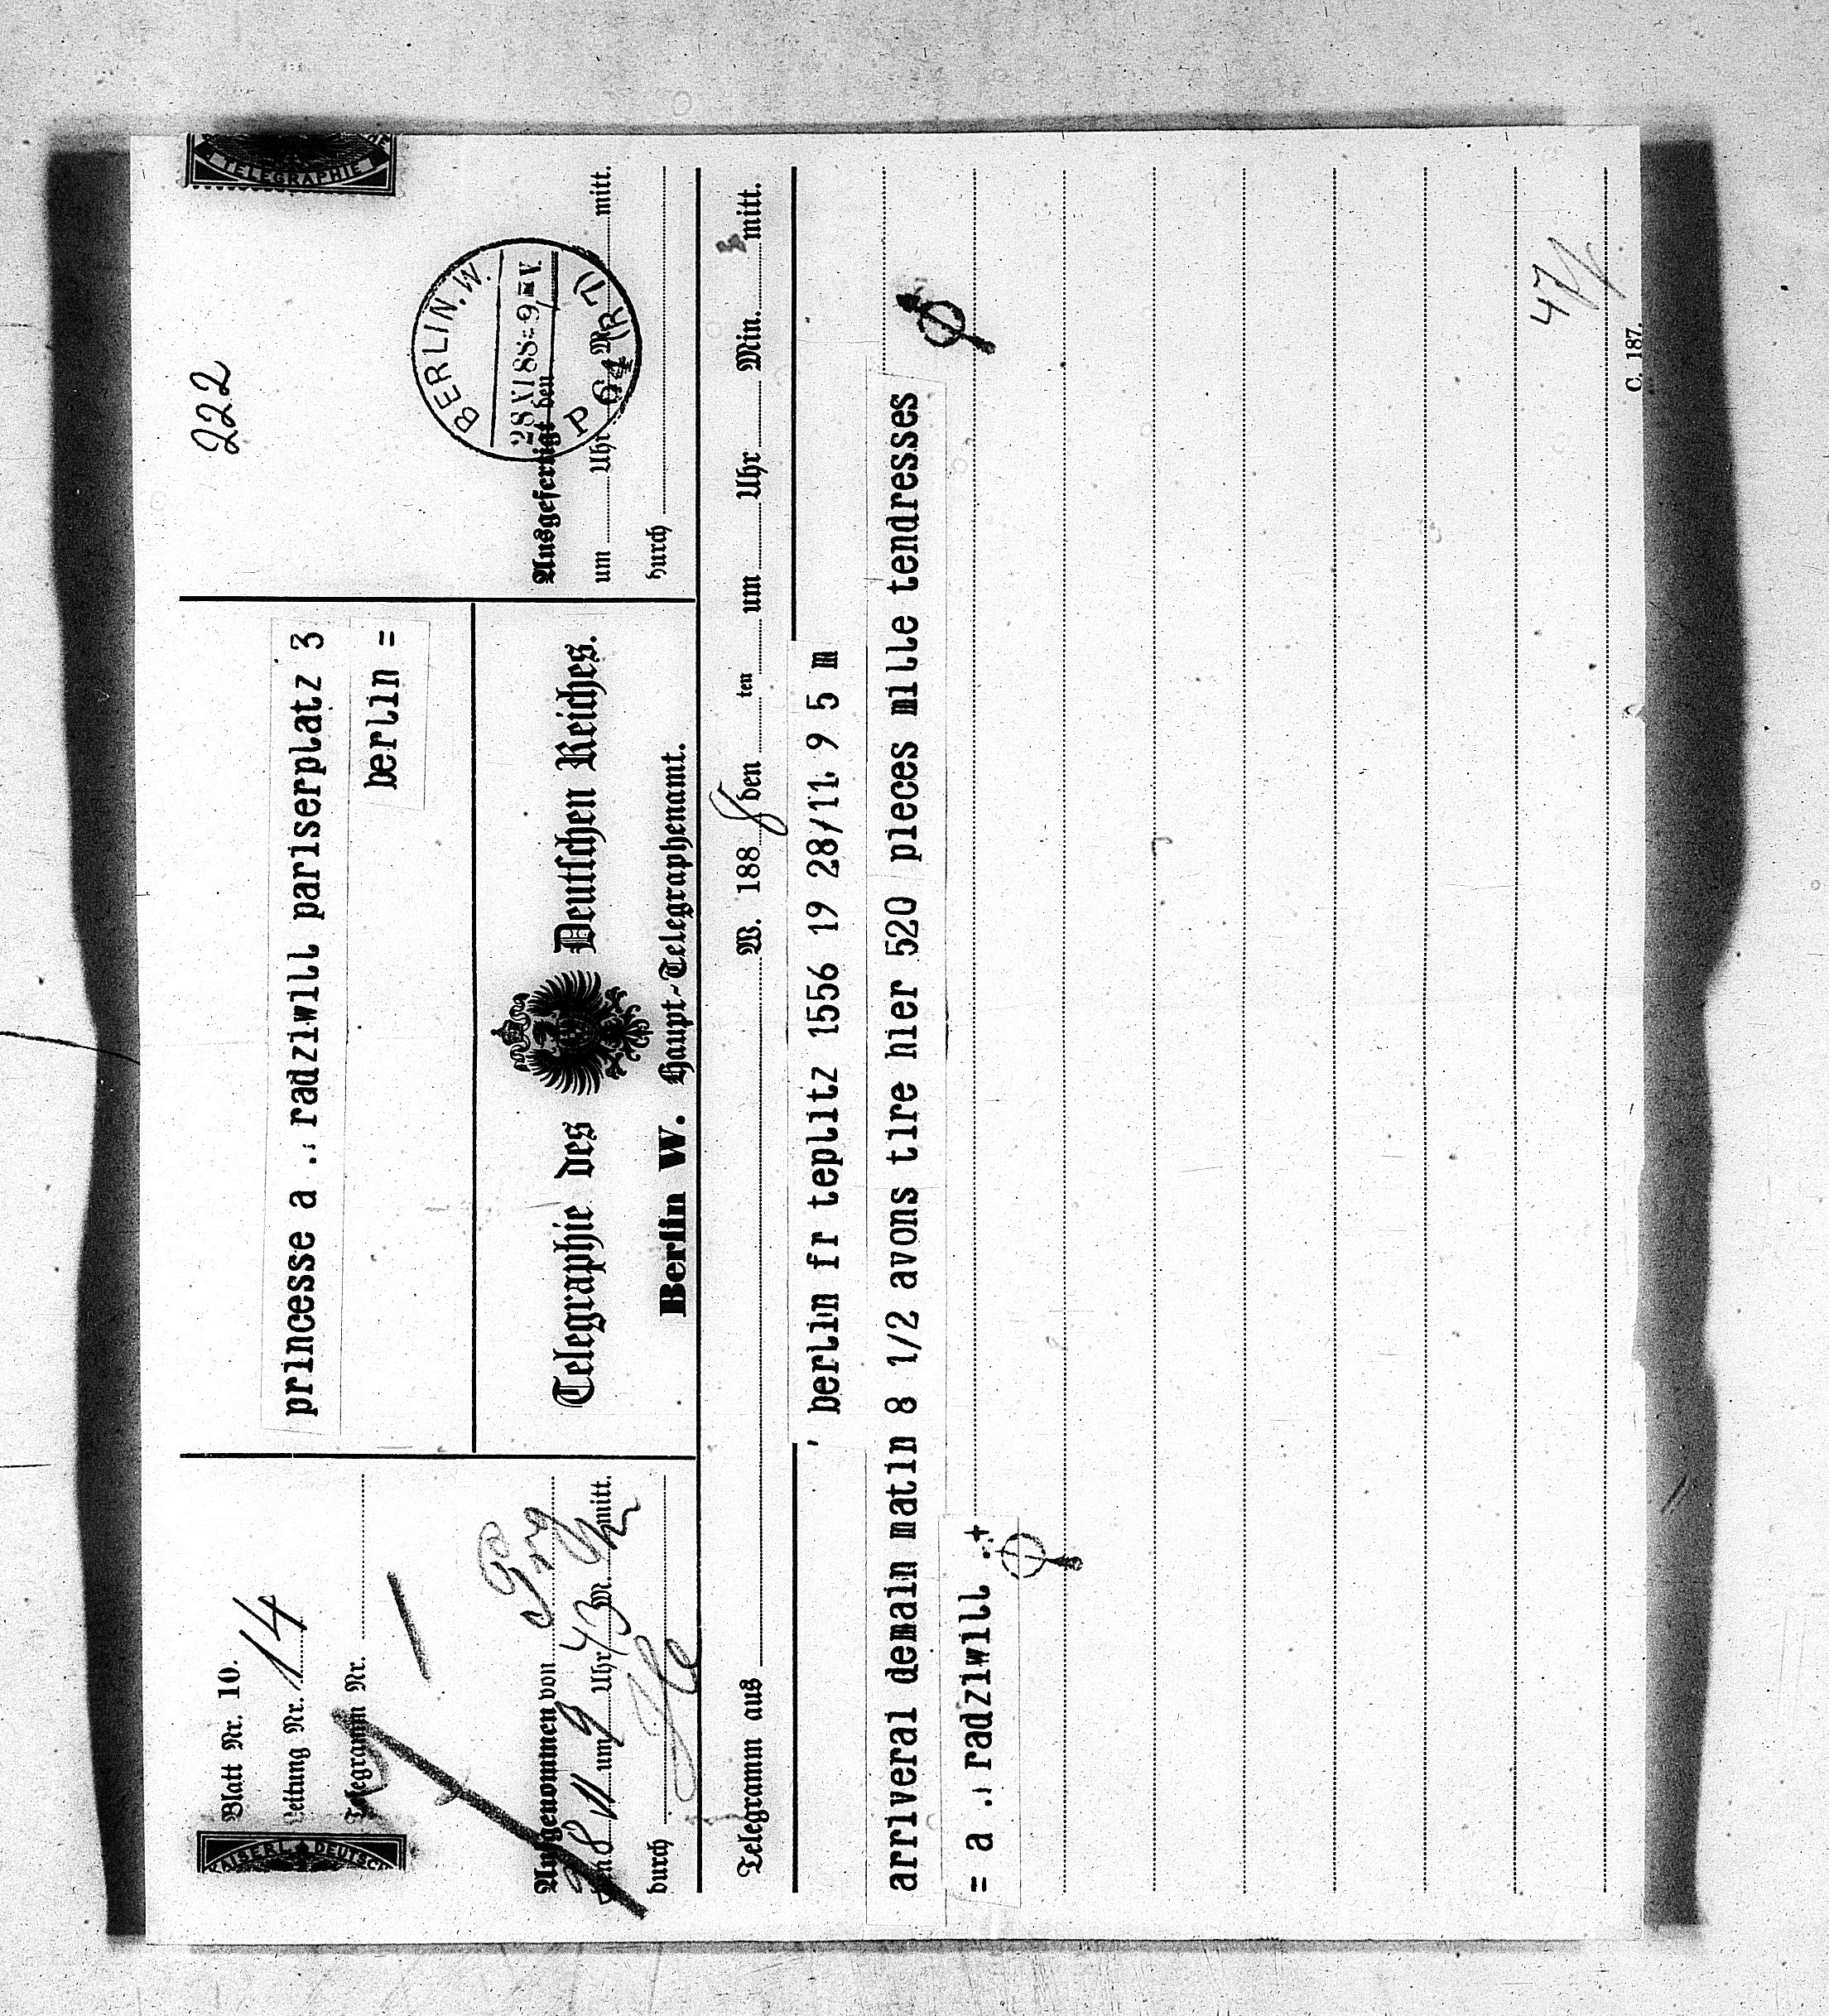 222
TELEGRAPHIE
KAISERL. DEUTSCH
Blatt Nr. 10.
Leitung Nr. 14
Telegramm Nr.
Aufgenommen von
den 28/11 um 9 Uhr 43 M. mitt.
durch
princesse a . radziwill pariserplatz 3
berlin =
Telegraphie des Deutschen Reiches.
Berlin W. Haupt-Telegraphenamt.
BERLIN, W.
28 XI 88 9 V.
P 64 (R 7)
Ausgefertigt den
um Uhr M. mitt.
durch
Telegramm aus W. 1888 den ten um Uhr Min. mitt.
berlin fr teplitz 1556 19 28/11 9 5 m
arriveral demain matin 8 1/2 avons tire hier 520 pieces mille tendresses
= a . radziwill . +
47
C. 187.